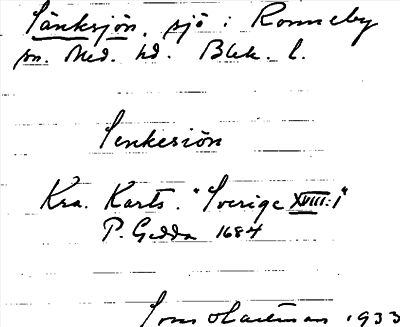 Sänksjön, sjö i Ronneby
sn. Med. hd. Blek. l.
Senkesiön
Kra. Karts. "Sverige XVIII:1"
P. Gedda 1684
1933